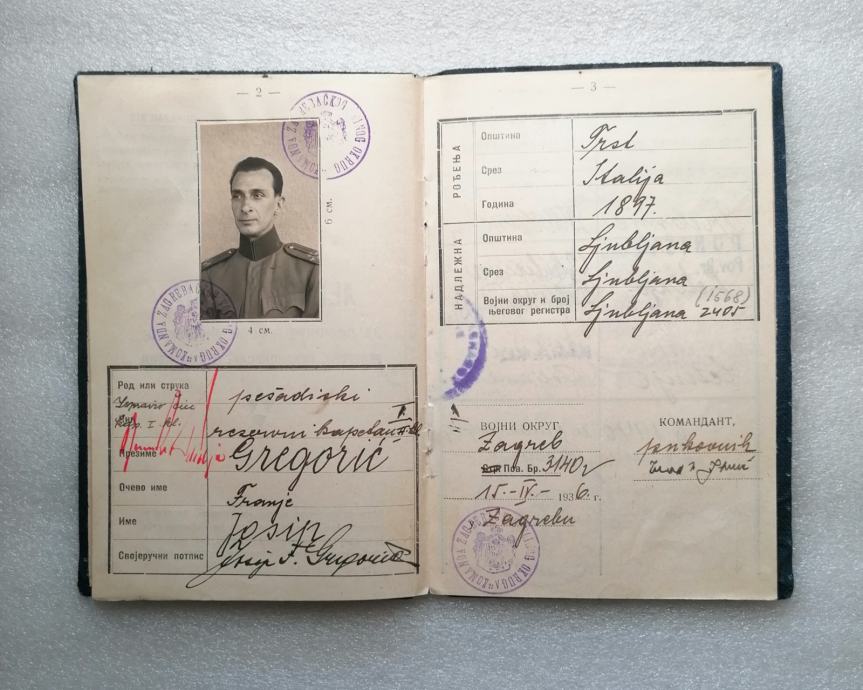 — 2 —
6 см.
4 см.
Род или струка pešadiski
kap. I kl.
rezervni kapetan
Презиме Gregorić
Очево име Franje
Име Josip
Својеручни потпис Josip F. Gregorić
— 3 —
РОЂЕЊА
Општина Trst
Срез Italija
Година 1897.
НАДЛЕЖНА
Општина Ljubljana
Срез Ljubljana
Војни округ и број његовог регистра Ljubljana 2405 (1568)
ВОЈНИ ОКРУГ
Zagreb
Пов. Бр. 3140
15.-IV.- 1936. г.
Zagrebu
КОМАНДАНТ,
pukovnik
КОМАНДА ЗАГРЕБАЧКОГ ВОЈНОГ ОКРУГА